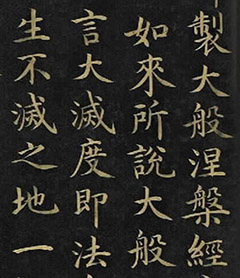 製大般涅槃經
如來所說大般
言大滅度即法
生不滅之地一